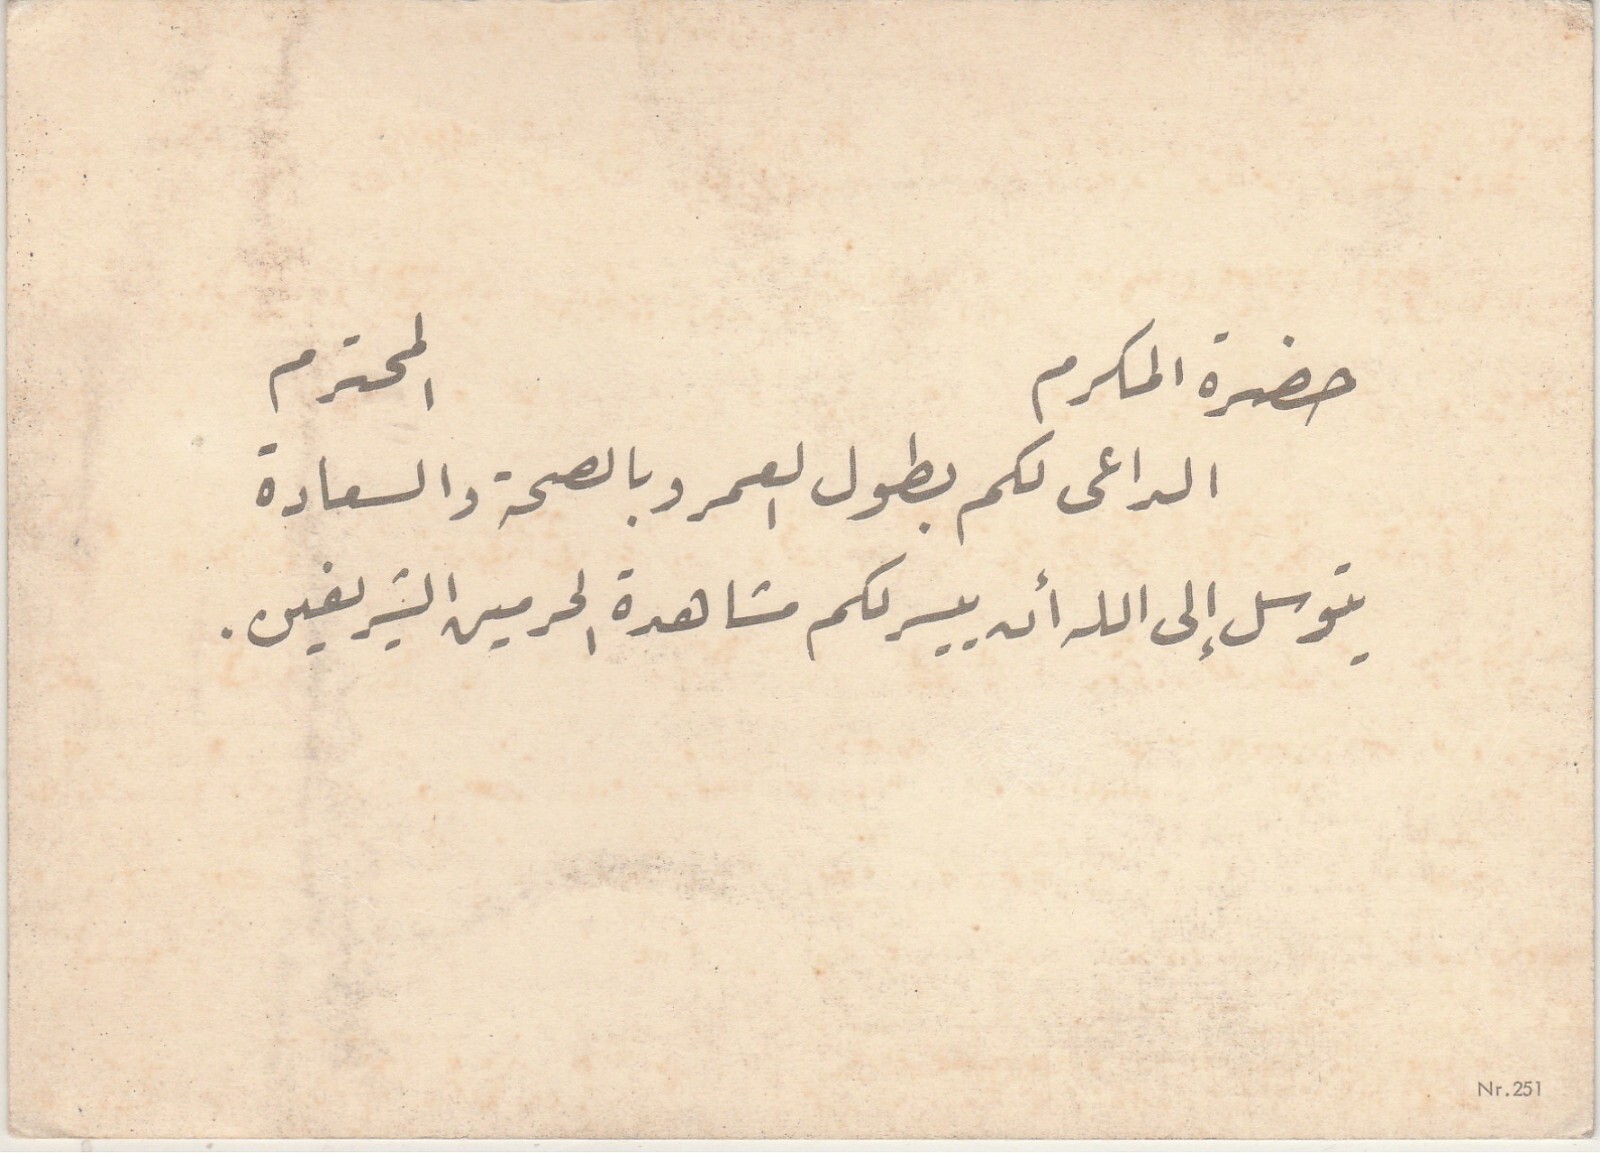 حضرة المكرم المحترم
الداعى لكم بطول العمر وبالصحة والسعادة
يتوسل إلى الله أن ييسر لكم مشاهدة الحرمين الشريفين.
Nr.251